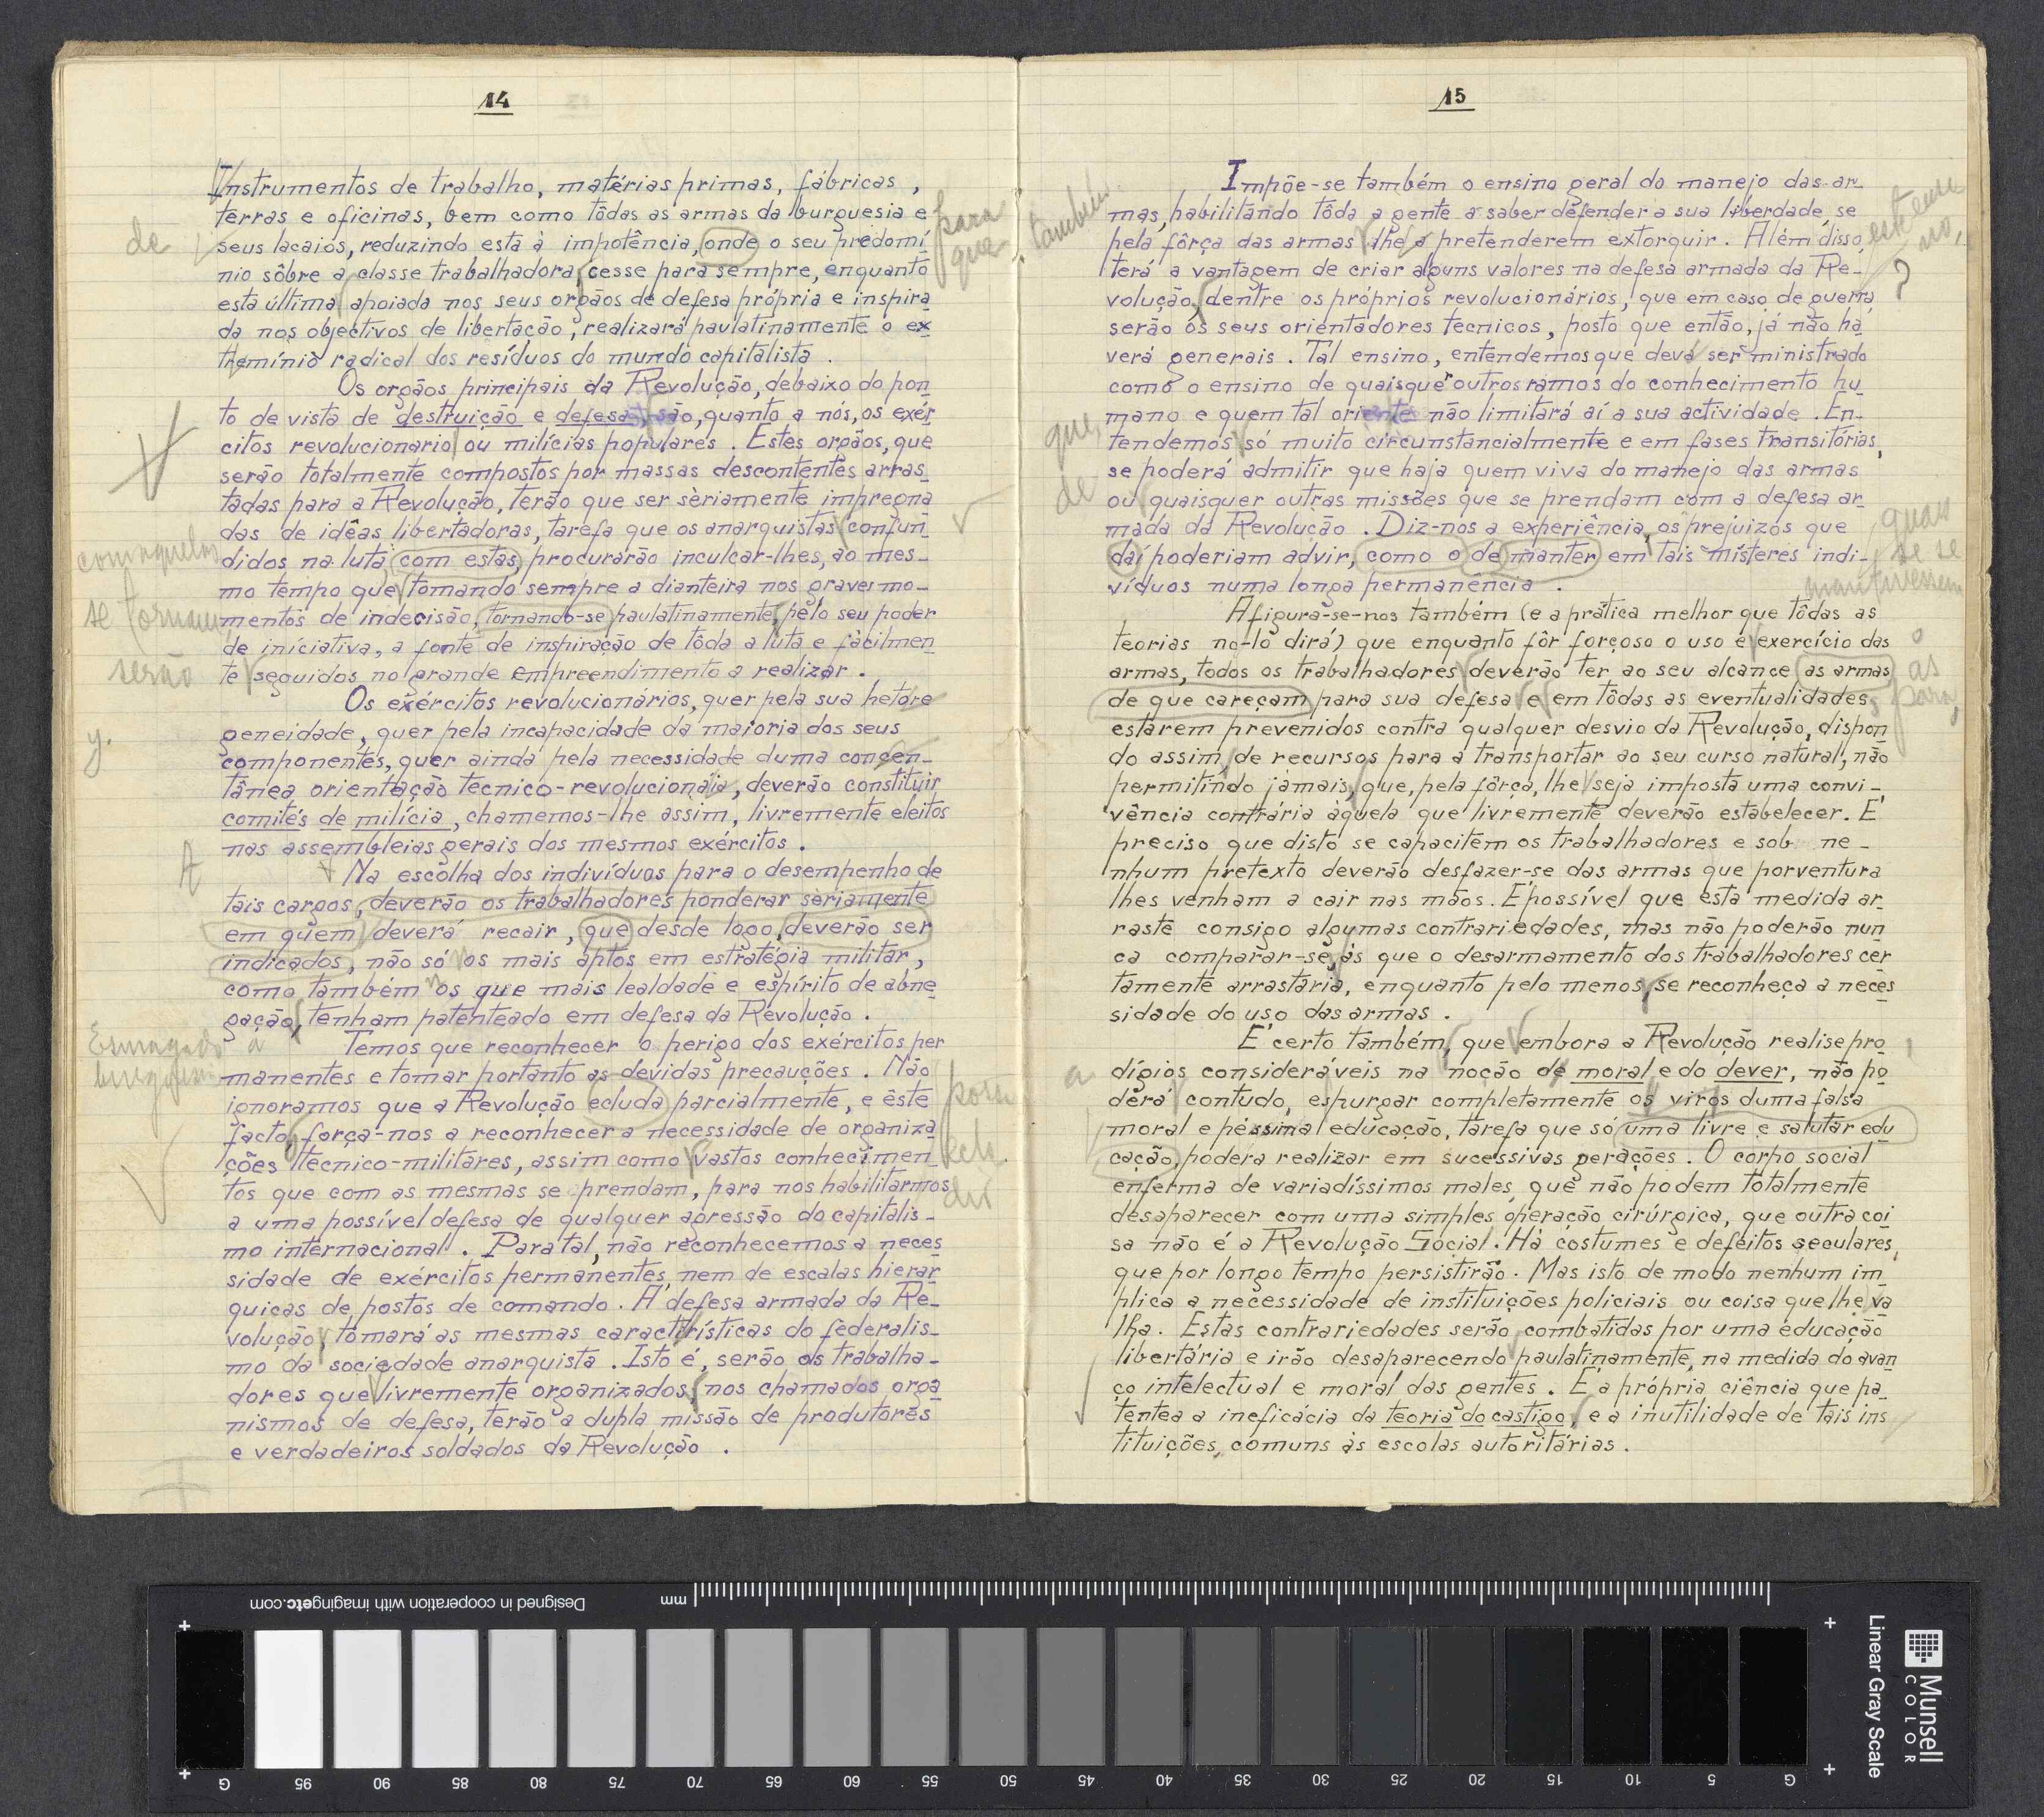 14
Instrumentos de trabalho, matérias primas, fábricas,
terras e oficinas, bem como tôdas as armas da burguesia e
seus lacaios, reduzindo esta à impotência, onde o seu predomí
nio sôbre a classe trabalhadora, cesse para sempre, enquanto
esta última apoiada nos seus orgãos de defesa própria e inspira
da nos objectivos de libertação, realizará paulatinamente o ex
tremínio radical dos resíduos do mundo capitalista.
Os orgãos principais da Revolução, debaixo do pon
to de vista de destruição e defesa, são, quanto a nós, os exér
citos revolucionario ou milícias populares. Estes orgãos, que
serão totalmente compostos por massas descontentes arras
tadas para a Revolução, terão que ser sèriamente impregna
das de idêas libertadoras, tarefa que os anarquistas confun
didos na luta, com estas, procurarão inculcar-lhes, ao mes-
mo tempo que tomando sempre a dianteira nos graves mo-
mentos de indecisão, tornando-se paulatinamente, pelo seu poder
de iníciativa, a fonte de inspiração de tôda a luta e fàcilmen
te seguidos no grande empreendimento a realizar.
Os exércitos revolucionários, quer pela sua hetore
geneidade, quer pela incapacidade da maioria dos seus
componentes, quer ainda pela necessidade duma concen-
tânea orientação tecnico-revolucionaia, deverão constituir
comités de milícia, chamemos-lhe assim, livremente eleitos
nas assembleias gerais dos mesmos exércitos.
Na escolha dos indivíduos para o desempenho de
tais cargos, deverão os trabalhadores ponderar sèriamente
em quem deverá recair, que desde logo, deverão ser
indicados, não só os mais aptos em estratégia militar,
como também os que mais lealdade e espírito de abne
gação, tenham patenteado em defesa da Revolução.
Temos que reconhecer o perigo dos exércitos per
manentes e tomar portanto as devidas precauções. Não
ignoramos que a Revolução ecluda parcialmente, e êste
facto, força-nos a reconhecer a necessidade de organiza
ções tecnico-militares, assim como vastos conhecimen
tos que com as mesmas se prendam, para nos habilitarmos
a uma possível defesa de qualquer agressão do capitalis-
mo internacional. Para tal, não reconhecemos a neces
sidade de exércitos permanentes, nem de escalas hierar
quicas de postos de comando. A defesa armada da Re-
volução, tomará as mesmas características do federalis-
mo da sociedade anarquista. Isto é, serão os trabalha-
dores que livremente organizados, nos chamados orga
nismos de defesa, terão a dupla missão de produtores
e verdadeiros soldados da Revolução.
de
para
que
com aquelas
se tornam
serão
y.
Esmagado a
15
Impõe-se também o ensino geral do manejo das ar
mas, habilitando tôda a gente a saber defender a sua liberdade se
pela fôrça das armas lhe a pretenderem extorquir. Além disso,
terá a vantagem de criar alguns valores na defesa armada da Re-
volução, dentre os próprios revolucionários, que em caso de guerra,
serão os seus orientadores tecnicos, posto que então, já não ha
verá generais. Tal ensino, entendemos que deva ser ministrado
como o ensino de quaisquer outros ramos do conhecimento hu
mano e quem tal oriente não limitará aí a sua actividade. En-
tendemos só muito circunstancialmente e em fases transitórias,
se poderá admitir que haja quem viva do manejo das armas
ou quaisquer outras missões que se prendam com a defesa ar
mada da Revolução. Diz-nos a experiência, os prejuizos que
daí poderiam advir, como o de manter em tais místeres indi-
víduos numa longa permanência.
Afigura-se-nos também (e a prática melhor que tôdas as
teorias no-lo dirá) que enquanto fôr forçoso o uso e exercício das
armas, todos os trabalhadores deverão ter ao seu alcance as armas
de que careçam para sua defesa e em tôdas as eventualidades,
estarem prevenidos contra qualquer desvio da Revolução, dispon
do assim, de recursos para a transportar ao seu curso natural, não
permitindo jàmais, que, pela fôrça, lhe seja imposta uma convi-
vência contrária àquela que livremente deverão estabelecer. É
preciso que disto se capacitem os trabalhadores e sob ne-
nhum pretexto deverão desfazer-se das armas que porventura
lhes venham a cair nas mãos. É possível que esta medida ar
raste consigo algumas contrariedades, mas não poderão nun
ca comparar-se, às que o desarmamento dos trabalhadores cer
tamente arrastaria, enquanto pelo menos, se reconheça a neces
sidade do uso das armas.
É certo também, que embora a Revolução realise pro
dígios consideráveis na noção de moral e do dever, não po
derá contudo, espurgar completamente os viros duma falsa
moral e péssima educação, tarefa que só uma livre e salutar edu
cação, podera realizar em sucessivas gerações. O corpo social
enferma de variadíssimos males, que não podem totalmente
desaparecer com uma simples operação cirúrgica, que outra coi
sa não é a Revolução Social. Há costumes e defeitos seculares,
que por longo tempo persistirão. Mas isto de modo nenhum im
plica a necessidade de instituições policiais ou coisa que lhe va
lha. Estas contrariedades serão combatidas por uma educação
libertária e irão desaparecendo paulatinamente, na medida do avan
ço intelectual e moral das gentes. É a própria ciência que pa
tentea a ineficácia da teoria do castigo, e a inutilidade de tais ins
tituições, comuns às escolas autoritárias.
também
?
que,
de
quais
se se
mantivessem
o
as
para,
a
Designed in cooperation with imagingetc.com
mm
Munsell
COLOR
Linear Gray Scale
G 95 90 85 80 75 70 65 60 55 50 45 40 35 30 25 20 15 10 5 G